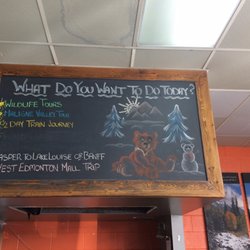 What Do You Want To Do Today?
Wildlife Tours
Maligne Valley Tour
½ Day Train Journey
Jasper to Lake Louise or Banff
West Edmonton Mall Trip